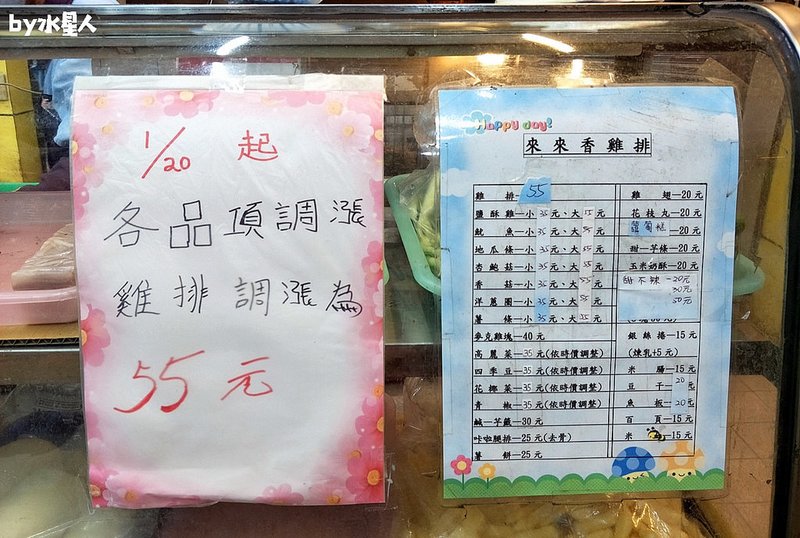 by水星人
1/20 起
各品項調漲
雞排調漲為
55元
Happy day!
來來香雞排
雞 排—55
鹽酥雞—小35元、大55元
魷 魚—小35元、大55元
地瓜條—小35元、大55元
杏鮑菇—小35元、大55元
香 菇—小35元、大55元
洋蔥圈—小35元、大55元
薯 條—小35元、大55元
麥克雞塊—40元
高麗菜—35元(依時價調整)
四季豆—35元(依時價調整)
花椰菜—35元(依時價調整)
青 椒—35元(依時價調整)
鹹—芋籤—30元
咔啦腿排—25元(去骨)
薯 餅—25元
雞 翅—20元
花枝丸—20元
蘿蔔糕—20元
甜—芋條—20元
玉米奶酥—20元
甜不辣—20元
30元
50元
銀絲捲—15元
(煉乳+5元)
米 腸—15元
豆 干—20元
魚 板—20元
百 頁—15元
米 —15元